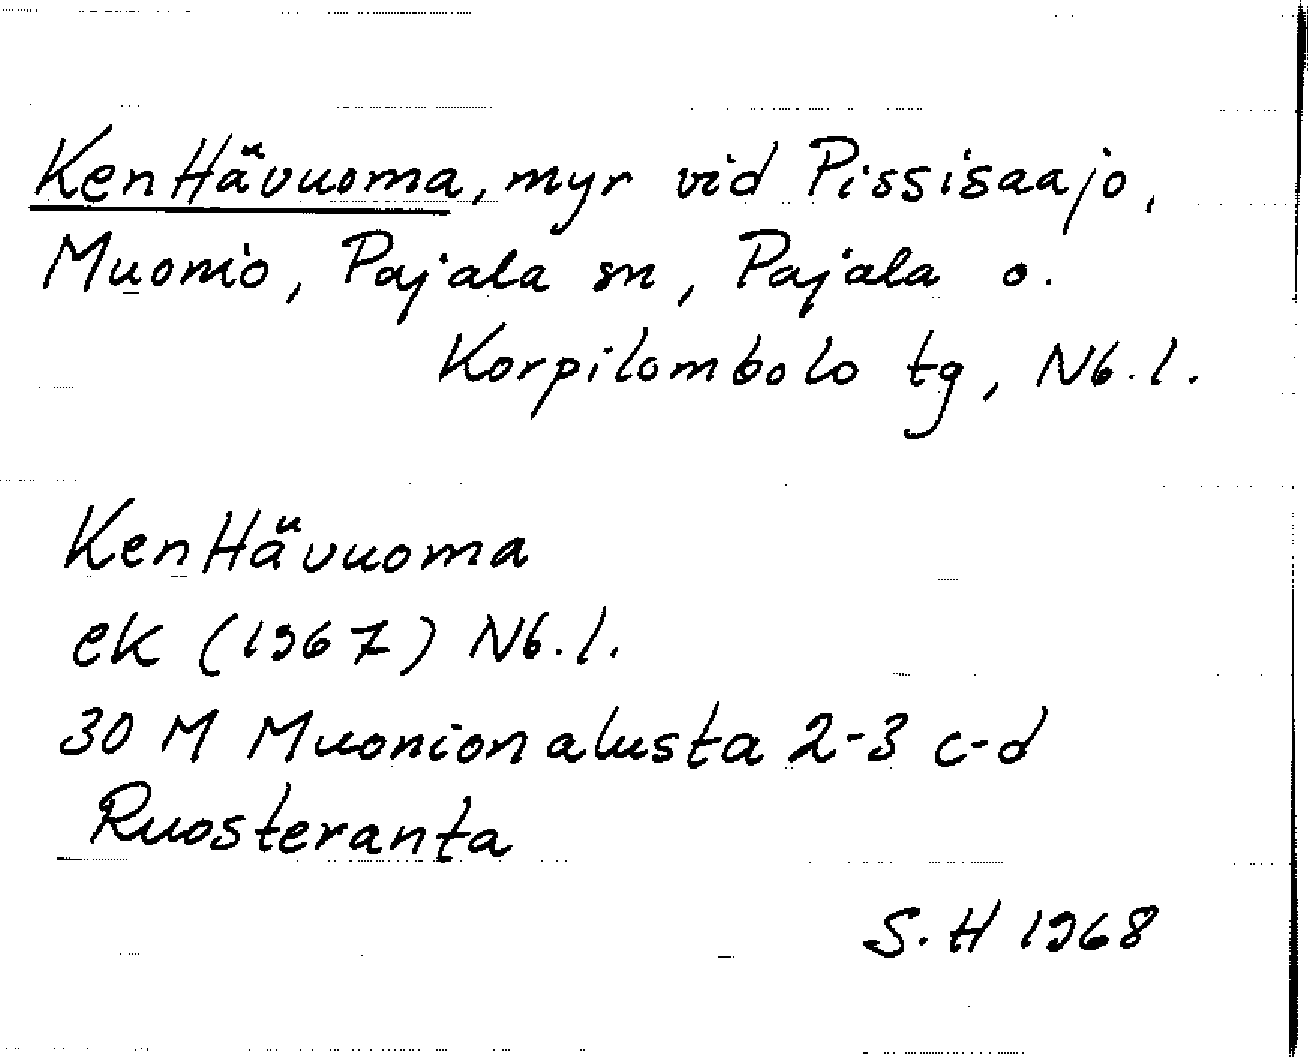 Kenttävuoma, myr vid Pissisaajo,
Muonio, Pajala sn, Pajala o.
Korpilombolo tg, Nb.l.
Kenttävuoma
ek (1967) Nb.l.
30 M Muonionalusta 2-3 c-d
Ruosteranta
S.H 1968